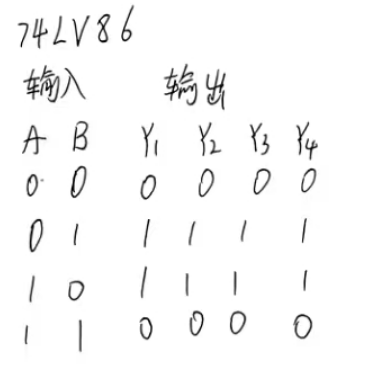 74LV86
输入 输出
A B Y₁ Y₂ Y₃ Y₄
0 0 0 0 0 0
0 1 1 1 1 1
1 0 1 1 1 1
1 1 0 0 0 0